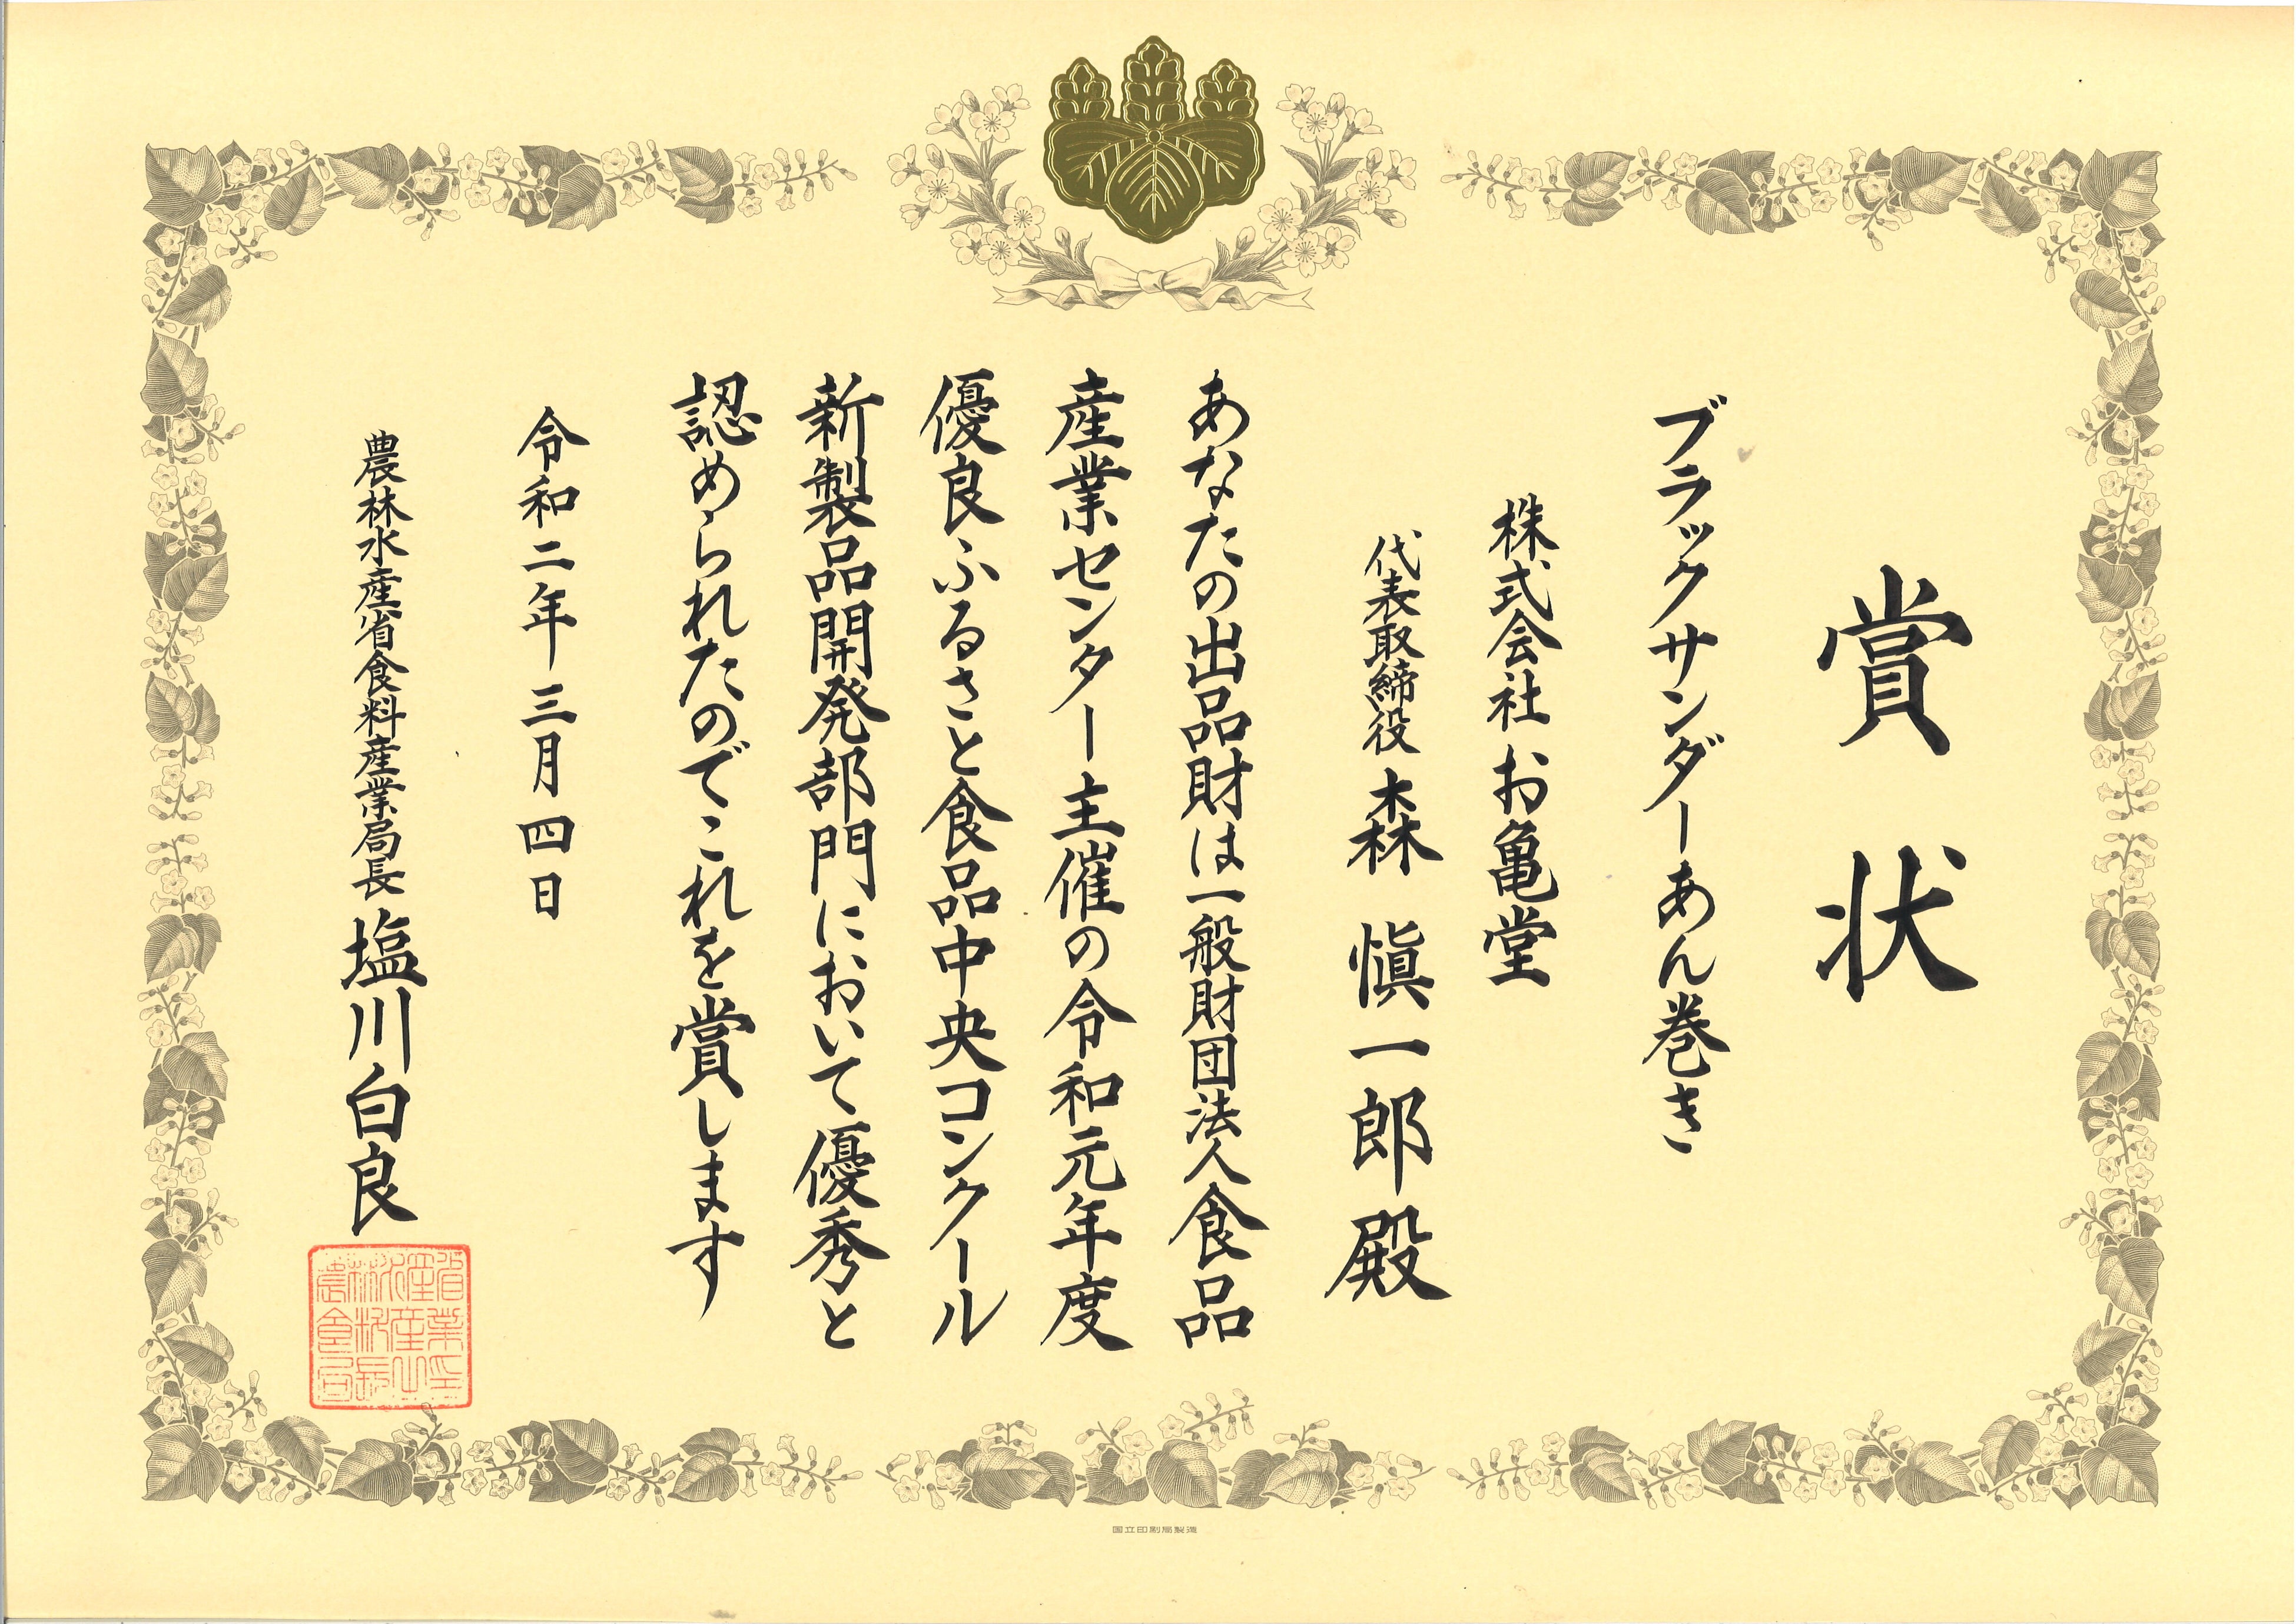 賞状
ブラックサンダーあん巻き
株式会社お亀堂
代表取締役 森 愼一郎 殿
あなたの出品財は一般財団法人食品
産業センター主催の令和元年度
優良ふるさと食品中央コンクール
新製品開発部門において優秀と
認められたのでこれを賞します
令和二年三月四日
農林水産省食料産業局長 塩川白良
国立印刷局製造